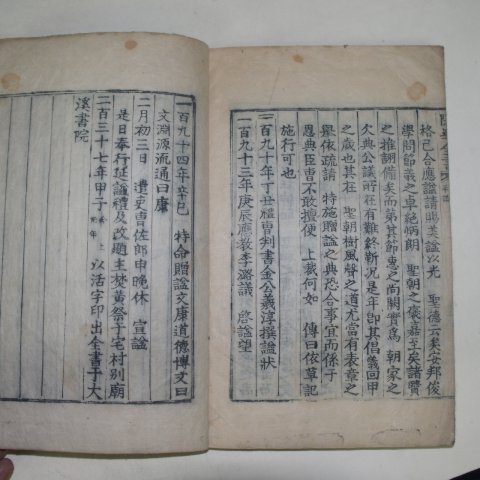 格已合應諡請賜美諡以光 聖德云矣安邦俊
學問節義之卓絶炳朗 聖朝之褒嘉至矣諸賢
之推詡備矣而第其節惠之尙闕實爲 朝家之
欠典公議所在有難終靳況是年卽其倡義回甲
之歲也其在 聖朝樹風聲之道尤當有表章之
擧依疏請 特施贈諡之典恐合事宜而係干
恩典臣曹不敢擅便 上裁何如 傳曰依草記
施行可也
一百九十年丁丑禮曹判書金公羲淳撰諡狀
一百九十三年庚辰應敎李潞議 啓諡望
一百九十四年辛巳 特命贈諡文康道德博文曰
文淵源流通曰康
二月初三日 遣吏曹佐郎申晩休 宣諡
是日奉行延諡禮及改題主焚黃祭于宅村別廟
二百三十七年甲子 當上元年 以活字印出全書于大
溪書院